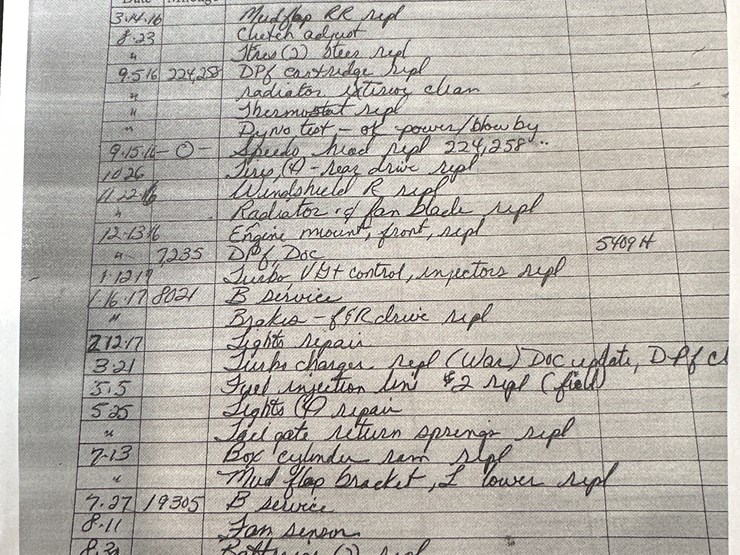 Date Mileage
3.14.16 Mudflap RR repl
8.23 Clutch adjust
" Tires (2) steer repl
9.5.16 224,258 DPf cartridge repl
" radiator exterior clean
" Thermostat repl
" Dyno test - ok power/blow by
9.15.16 - 0 - Speedo head repl 224,258 ..
10 26 Tires (4) - rear drive repl
11 22 16 Windshield R repl
" Radiator & fan blade repl
12.13 16 Engine mount, front, repl
" 7235 DPf, Doc 5409 H
1.12 17 Turbo VGT control, injectors repl
1.16.17 8021 B service
" Brakes - f & R drive repl
2 12.17 Lights repair
3.21 Turbo charger repl (War) Doc update, DPf cl
5.5 Fuel injection line #2 repl (field)
5.25 Lights (4) repair
" Tail gate return springs repl
7-13 Box cylinder ram repl
" Mud flap bracket, L lower repl
7.27 19305 B service
8.11 Fan sensor
8.3 Batteries (2) repl